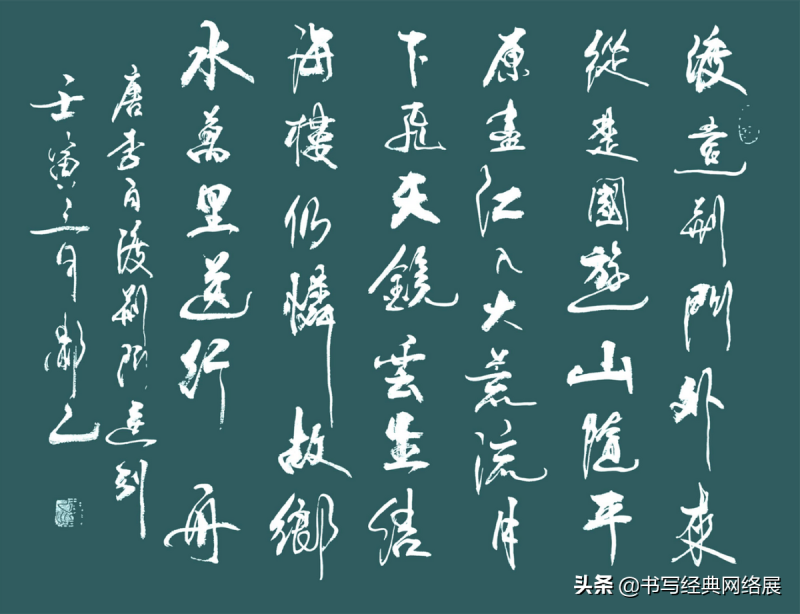 渡遠荆門外來
從楚國遊山隨平
原盡江入大荒流月
下飛天鏡雲生結
海樓仍憐故鄉
水萬里送行舟
唐李白渡荆門送别
壬寅三月
头条 @书写经典网络展